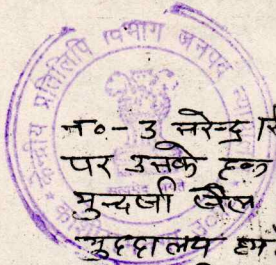 केन्द्रीय प्रतिलिपि विभाग जनपद
नं०-3 नरेन्द्र सि
पर उनके हक
मुन्दर्जा जैल
मुद्दालय हा